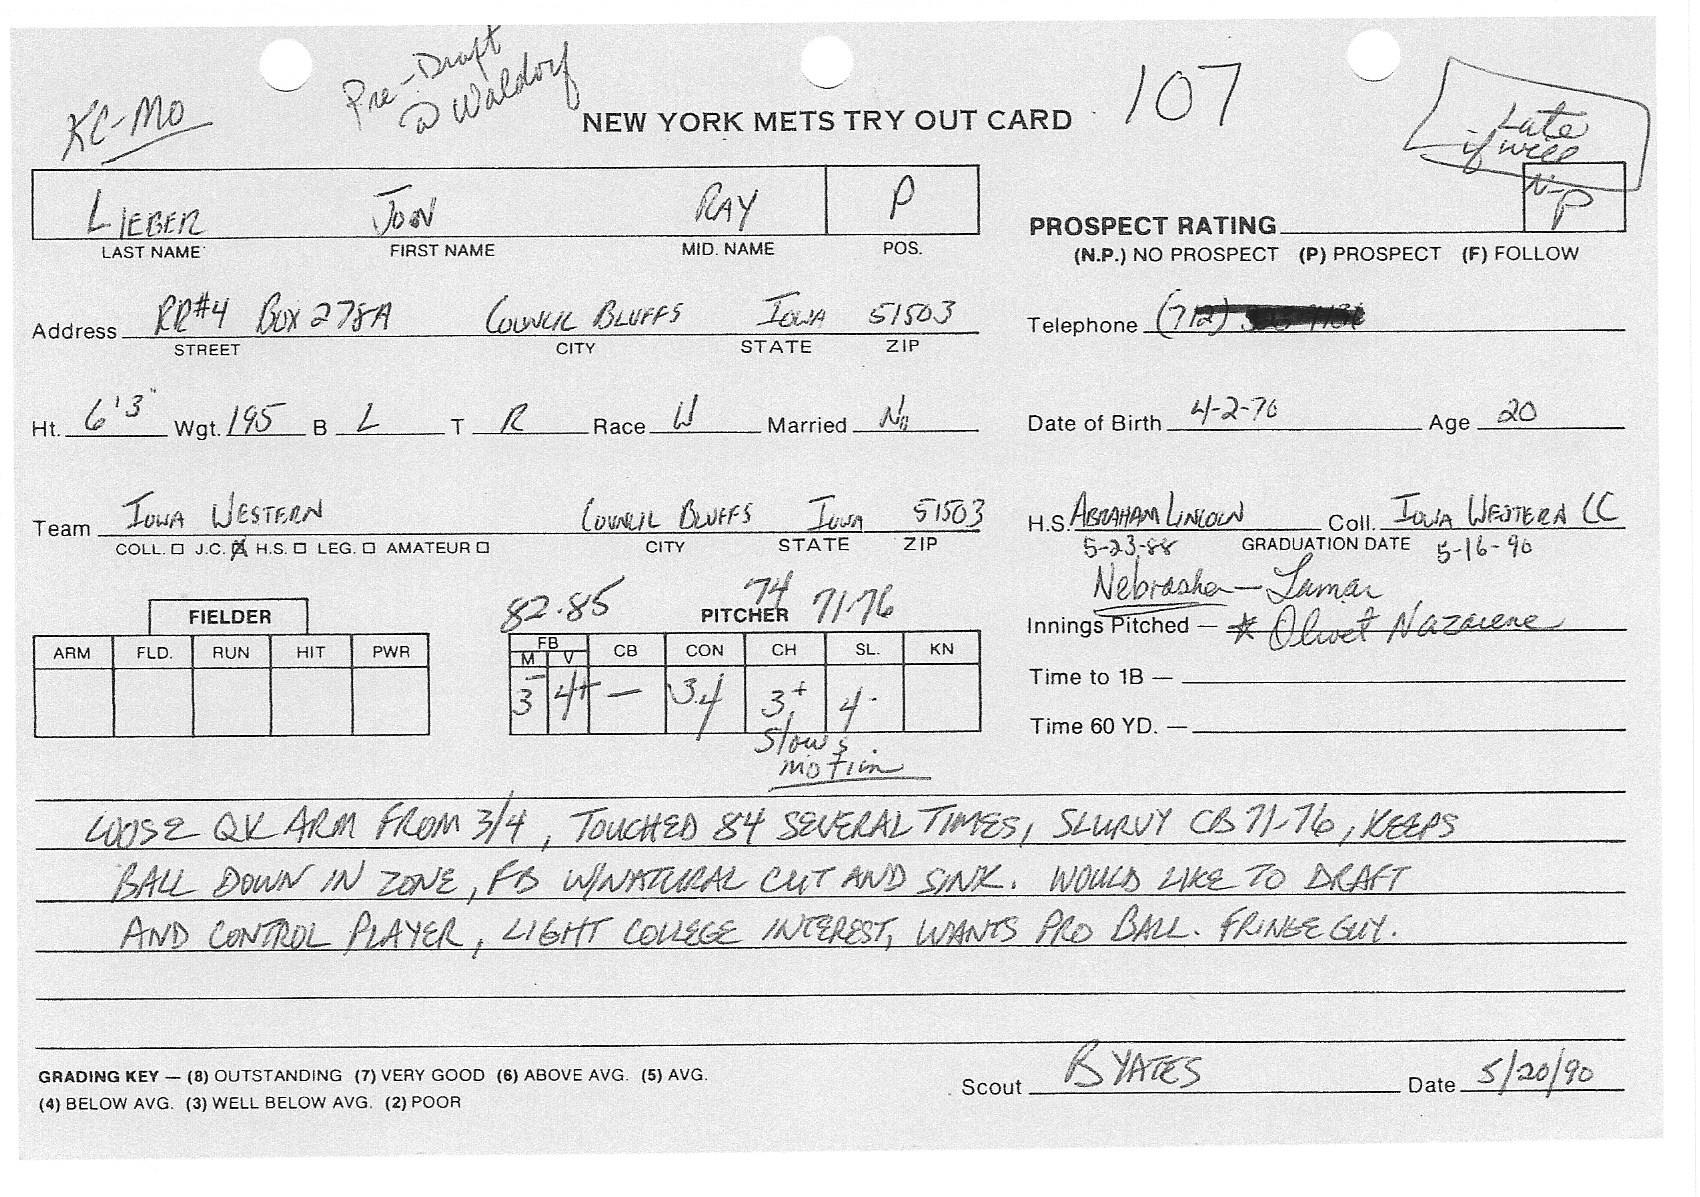 KC-MO
Pre-Draft
@ Waldorf
NEW YORK METS TRY OUT CARD
107
Late
if well
N-P
LIEBER JON RAY P
LAST NAME FIRST NAME MID. NAME POS.
PROSPECT RATING
(N.P.) NO PROSPECT (P) PROSPECT (F) FOLLOW
Address RR#4 BOX 278A COUNCIL BLUFFS IOWA 51503
STREET CITY STATE ZIP
Telephone (712)
Ht. 6'3" Wgt. 195 B L T R Race W Married No
Date of Birth 4-2-70 Age 20
Team IOWA WESTERN COUNCIL BLUFFS IOWA 51503
COLL. J.C. H.S. LEG. AMATEUR CITY STATE ZIP
H.S. ABRAHAM LINCOLN Coll. IOWA WESTERN CC
5-23-88 GRADUATION DATE 5-16-90
Nebraska - Lamar
Innings Pitched — * Olivet Nazarene
Time to 1B —
Time 60 YD. —
FIELDER
ARM FLD. RUN HIT PWR
82-85 74 71-76
PITCHER
FB CB CON CH SL. KN
M V
3- 4+ — 34 3+ 4-
Slows
motion
LOOSE QK ARM FROM 3/4, TOUCHED 84 SEVERAL TIMES, SLURVY CB 71-76, KEEPS
BALL DOWN IN ZONE, FB W/NATURAL CUT AND SINK. WOULD LIKE TO DRAFT
AND CONTROL PLAYER, LIGHT COLLEGE INTEREST, WANTS PRO BALL. FRINGE GUY.
GRADING KEY — (8) OUTSTANDING (7) VERY GOOD (6) ABOVE AVG. (5) AVG.
(4) BELOW AVG. (3) WELL BELOW AVG. (2) POOR
Scout B YATES Date 5/20/90